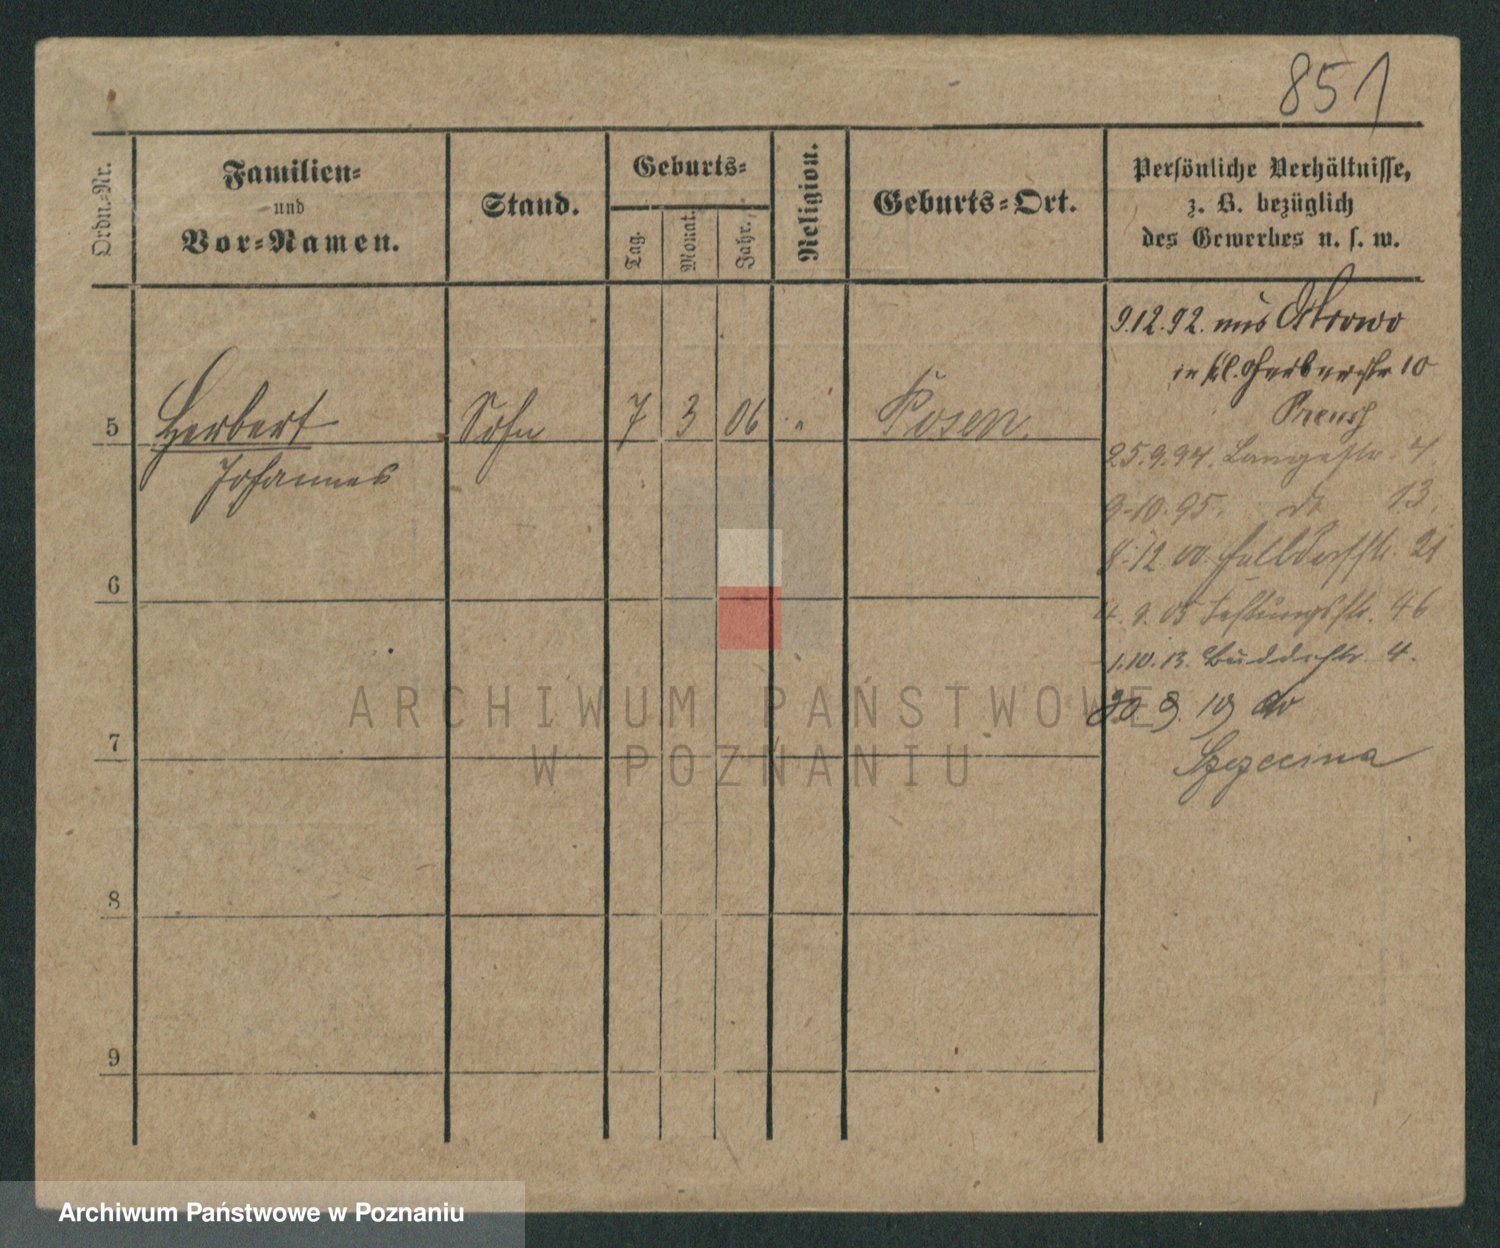 851
Ordn.-Nr.
Familien-
und
Vor-Namen.
Stand.
Geburts-
Tag.
Monat.
Jahr.
Religion.
Geburts-Ort.
Persönliche Verhältnisse,
z. B. bezüglich
des Gewerbes u. s. w.
9.12.92. aus Ostrowo
in kl. Gerberstr 10
Preuss
5 Herbert Sohn 7 3 06 " Posen.
Johannes
25.9.94. Langestr. 4
9-10.95. do 13.
8.12 00. Halldorfstr. 21
4. 9. 05 Festungsstr. 46
1.10.13. Buddestr. 4.
30 9. 19 do
Szczecina
6
7
8
9
ARCHIWUM PAŃSTWOWE
W POZNANIU
Archiwum Państwowe w Poznaniu